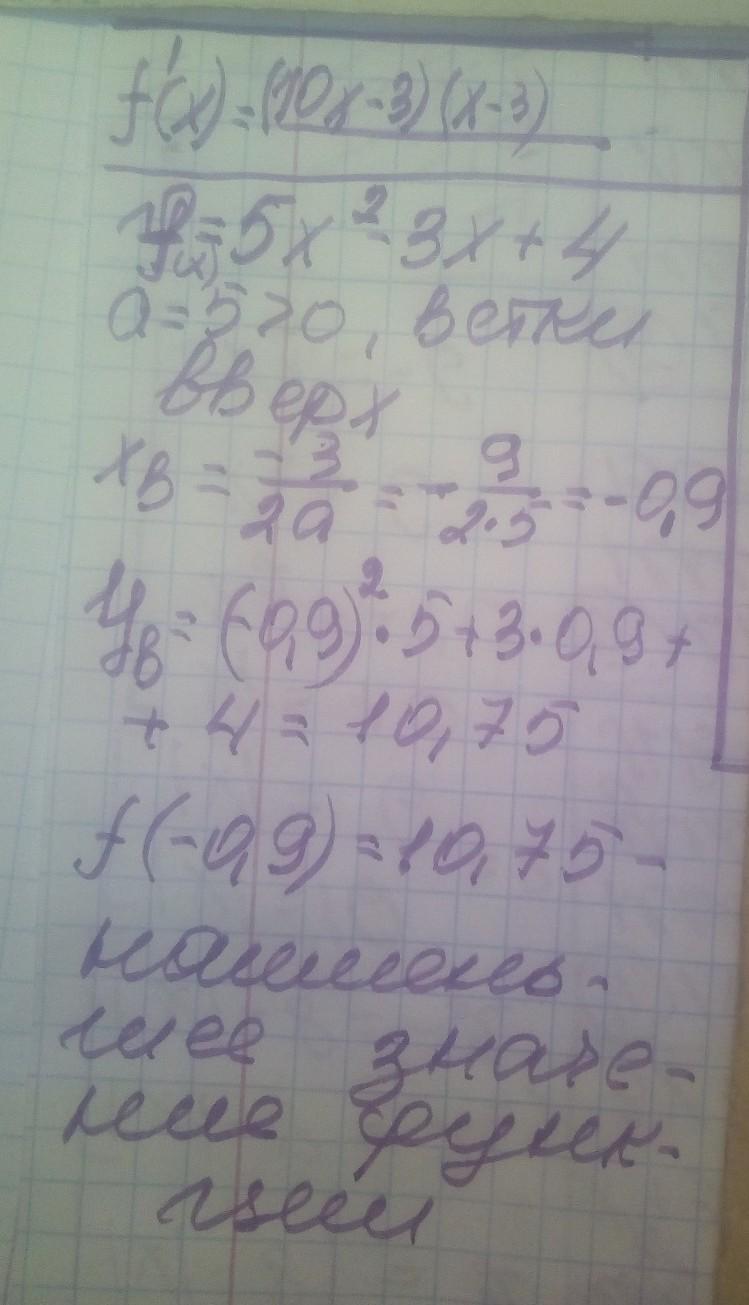 f'(x) = (10x - 3)(x - 3)
f(x) = 5x² - 3x + 4
a = 5 > 0, ветки
вверх
xв = -3/2a = - 9/2·5 = -0,9
yв = (-0,9)²·5 + 3·0,9 +
+ 4 = 10,75
f(-0,9) = 10,75 -
наимень-
шее значе-
ние функ-
ции